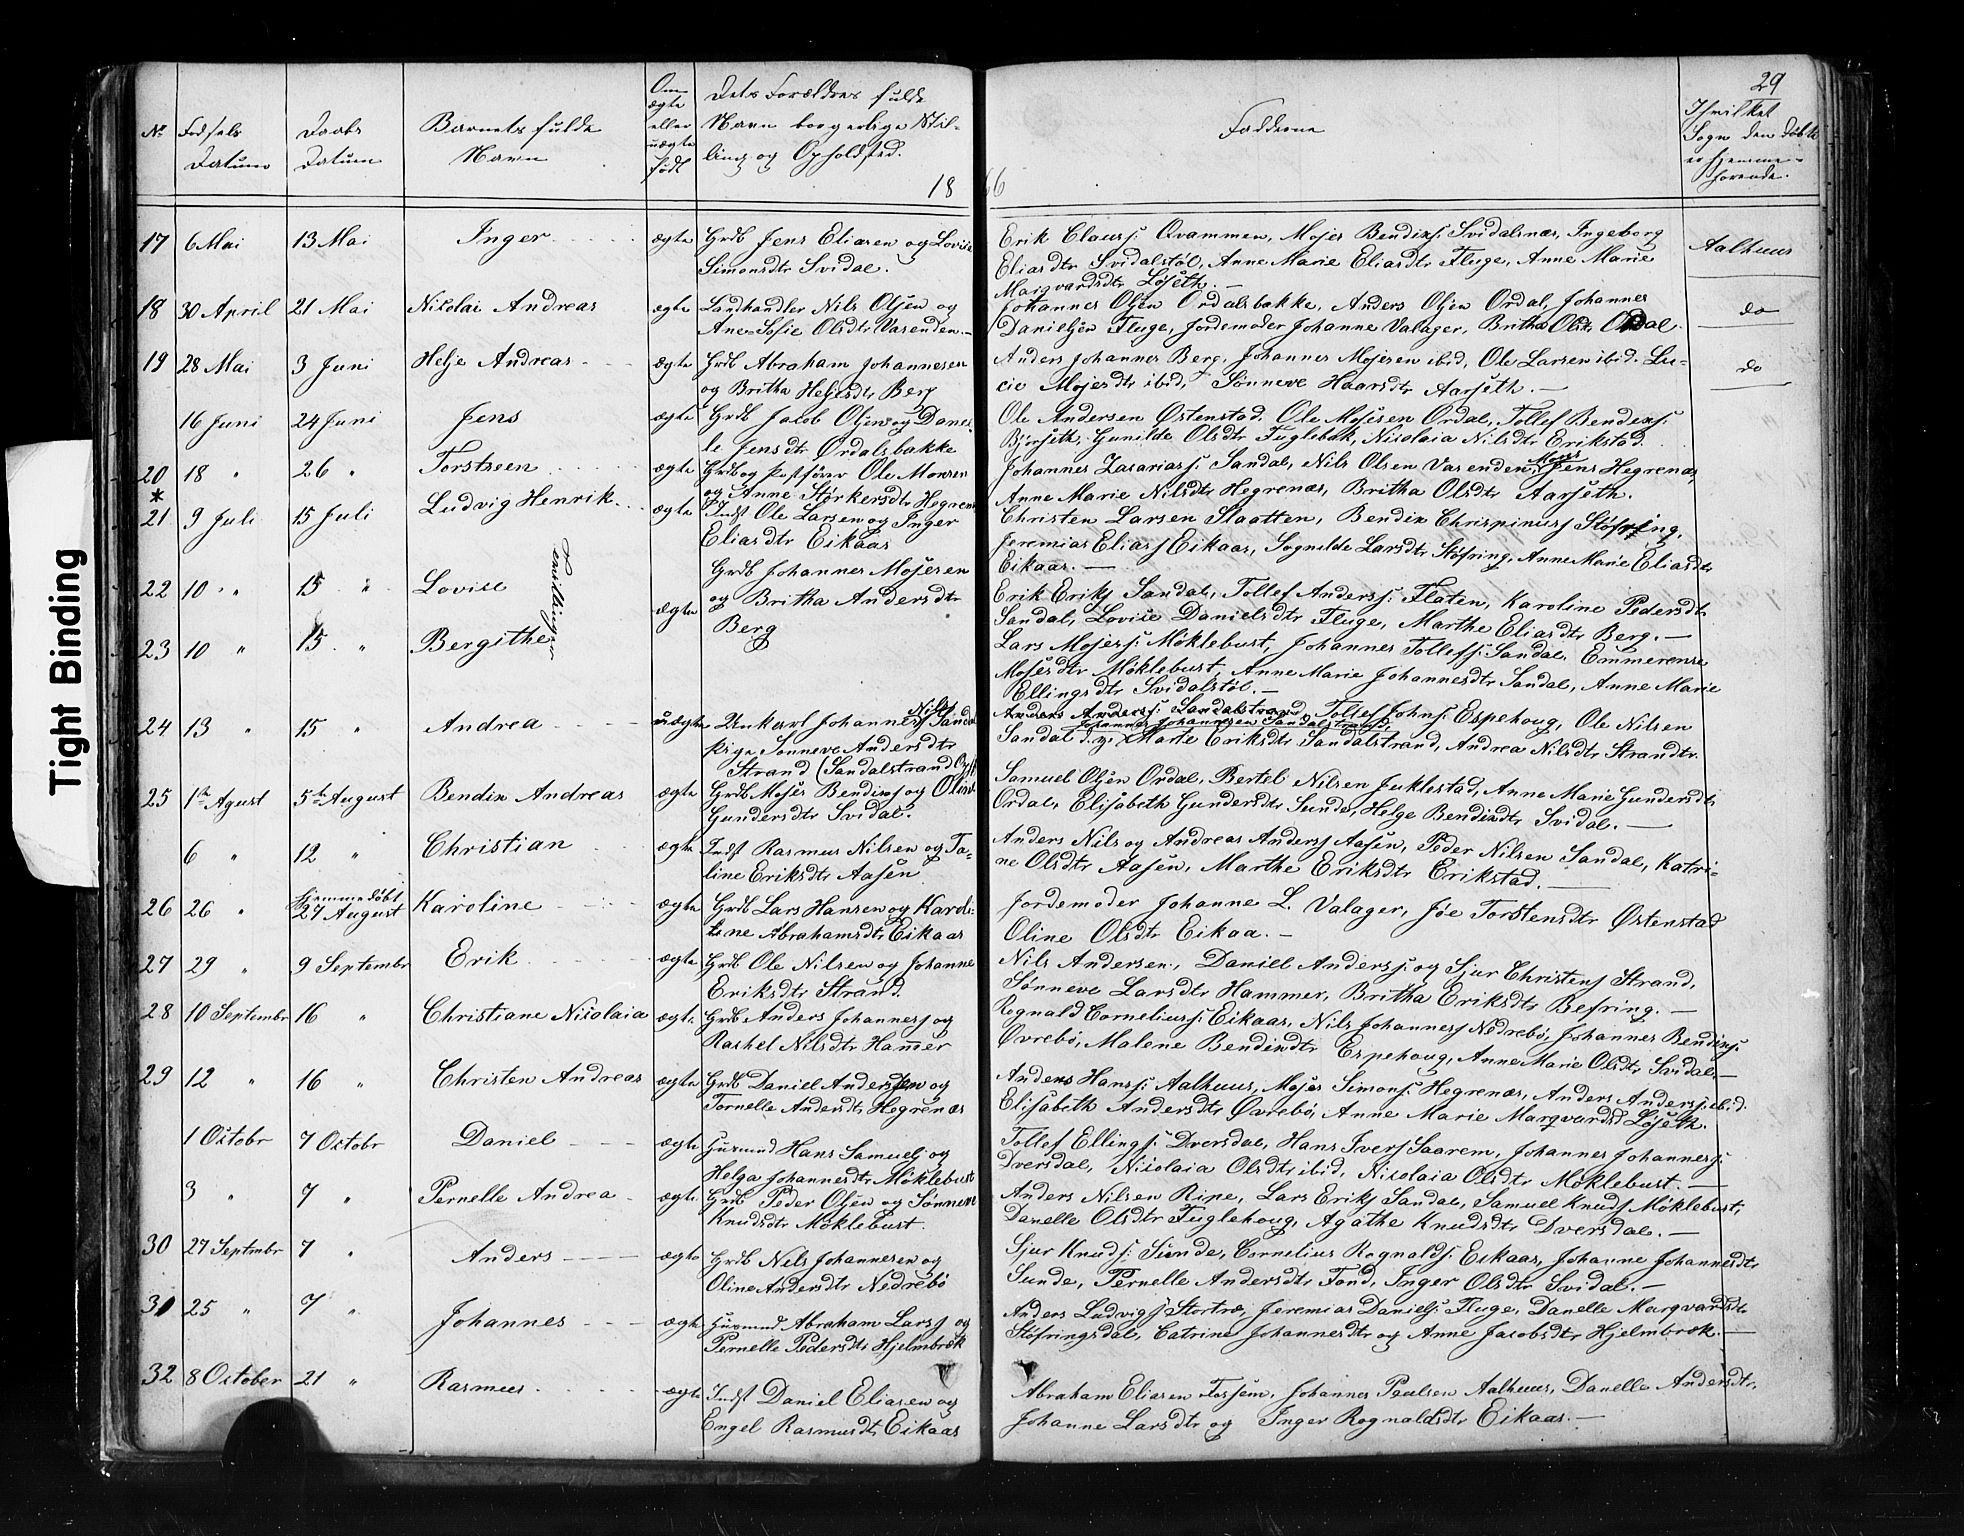 Tight Binding
29
No
Fødsels
Datum
Daabs
Datum
Barnets fulde
Navn
Om
ægte
eller
uægte
født
Dets Forældres fulde
Navn borgerlige Stil-
ling og Opholdsted.
Fadderne
I hvilket
Sogn den døbte
er hjemme-
hørende.
18 66
17 6 Mai 13 Mai Inger ægte Grdb Jens Eliasen og Lovise
Simonsdtr Svidal.
Erik Clauss: Qvammen, Moses Bendixs: Svidalsnæs, Ingeborg
Eliasdtr Svidalstøl, Anne Marie Eliasdtr Fluge, Anne Marie
Marqvardsdtr Løseth. —
Aalhuus
18 30 April 21 Mai Nikolai Andreas ægte Landhandler Nils Olsen og
Ane Sofie Olsdtr Varenden. —
Johannes Olsen Ordalsbakke, Anders Olsen Ordal, Johannes
Danielsen Fluge, Jordemoder Johanne Valager, Britha Olsdtr Ordal.
do
19 28 Mai 3 Juni Helje Andreas ægte Grdb Abraham Johannesen
og Britha Heljesdtr Berg
Anders Johannes Berg, Johannes Mosesen ibid, Ole Larsen ibid. Lu-
cie Mosesdtr ibid, Sønneve Haarsdtr Aarseth. —
do
16 Juni 24 Juni Jens ægte Grdb Jacob Olsen og Danel-
le Jensdtr Ordalsbakke
Ole Andersen Østenstad. Ole Mosesen Ordal, Tollef Bendixs:
Bjørseth, Gunilde Olsdtr Fuglebak, Nicolaia Nilsdtr Erikstad.
20 18 " 26 " Torsteen ægte Grdb og Postfører Ole Monsen
og Anne Størkersdtr Hegrenæs
Johannes Zakariass: Sandal, Nils Olsen Varenden, Moses Jens Hegrenæs,
Anne Marie Nilsdtr Hegrenæs, Britha Olsdtr Aarseth.
*
21 9 Juli 15 Juli Ludvig Henrik ægte Indst Ole Larsen og Inger
Eliasdtr Eikaas
Christen Larsen Slaatten, Bendix Chrispinuss Støfring,
Jeremias Eliass Eikaas, Sognilde Larsdtr Støfring, Anne Marie Eliasdtr
Eikaas. —
22 10 " 15 " Lovise
Tvillinger
ægte
Grdb Johannes Mosesen
og Britha Andersdtr
Berg
Erik Eriks Sandal, Tollef Anderss: Flaten, Karoline Pedersdtr
Sandal, Lovise Danielsdtr Fluge, Marthe Eliasdtr Berg. —
23 10 " 15 " Bergithe
Lars Mosess: Møklebust, Johannes Tollefs: Sandal, Emmerense
Mosesdtr Møklebust, Anne Marie Johannesdtr Sandal, Anne Marie
Ellingsdtr Svidalstøl. —
24 13 " 15 " Andrea uægte Unkarl Johannes Nils Sandal
Pige Sønneve Andersdtr
Strand (Sandalstrand
Anders Anderss: Sandalstrand, Tollef Johns: Espehoug, Ole Nilsen
Johannes Johannesen Sandalstrand
Sandal d. y. Marte Eriksdtr Sandalstrand, Andrea Nilsdtr Strandtr.
25 1te Agust 5te August Bendix Andreas ægte Grdb Moses Bendixs og Oline
Gundersdtr Svidal.
Samuel Olsen Ordal, Bertel Nilsen Juklestad, Anne Marie Gundersdtr
Ordal, Elisabeth Gundersdtr Sunde, Helge Bendixdtr Svidal. —
6 " 12 " Christian ægte Indst Rasmus Nilsen og Ta-
line Eriksdtr Aasen
Anders Nils og Andreas Anderss Aasen, Peder Nilsen Sandal, Katri-
ne Olsdtr Aasen, Marthe Eriksdtr Erikstad. —
26 26 " Hjemmedøbt
27 August Karoline ægte Grdb Lars Hansen og Karo-
line Abrahamsdtr Eikaas
Jordemoder Johanne L. Valager, Jøe Torstensdtr Østenstad
Oline Olsdtr Eikaa. —
27 29 " 9 Septembr Erik ægte Grdb Ole Nilsen og Johanne
Eriksdtr Strand.
Nils Andersen, Daniel Anderss: og Sjur Christens Strand,
Sønneve Larsdtr Hammer, Britha Eriksdtr Befring. —
28 10 Septembr 16 " Christiane Nicolaia ægte Grdb Anders Johanness og
Rashel Nilsdtr Hammer
Rognald Corneliuss: Eikaas, Nils Johanness Nedrebø, Johannes Bendixs:
Øvrebø, Malene Bendixdtr Espehoug, Anne Marie Olsdtr Svidal. —
29 12 " 16 " Christen Andreas ægte Grdb Daniel Andersen og
Tornelle Andersdtr Hegrenæs
Anders Hanss: Aalhuus, Moses Simons: Hegrenæs, Anders Anderss: ibid.
Elisabeth Andersdtr Øvrebø, Anne Marie Marqvardsd Løseth.
1 Octobr 7 Octobr Daniel ægte Huusmnd Hans Samuels og
Helga Johannesdtr Møklebust
Tollef Ellings: Dversdal, Hans Ivers Saarem, Johannes Johanness:
Dversdal, Nicolaia Olsdtr ibid, Nicolaia Olsdtr Møklebust. —
3 " 7 " Pernelle Andrea ægte Grdb Peder Olsen og Sønneve
Knudsdtr Møklebust.
Anders Nilsen Ripe, Lars Eriks Sandal, Samuel Knuds Møklebust,
Danelle Olsdtr Fuglehoug, Agathe Knudsdtr Dversdal. —
30 27 Septmbr 7 " Anders ægte Grdb Nils Johannesen og
Oline Andersdtr Nedrebø
Sjur Knuds: Sunde, Cornelius Rognalds: Eikaas, Johanne Johannesdtr
Sunde, Pernelle Andersdtr Fond, Inger Olsdtr Svidal. —
31 25 " 7 " Johannes ægte Huusmnd. Abraham Larss og
Pernelle Pedersdtr Hjelmbrek
Anders Ludvigs Stortræ, Jeremias Daniels: Fluge, Danelle Marqvardsdtr
Støfringsdal, Catrine Johannesdtr og Anne Jacobsdtr Hjelmbrek. —
32 8 October 21 " Rasmus ægte Indst Daniel Eliasen og
Engel Rasmusdtr Eikaas
Abraham Eliasen Fossem, Johannes Paulsen Aalhuus, Danelle Andersdtr,
Johanne Larsdtr og Inger Rognaldsdtr Eikaas. —